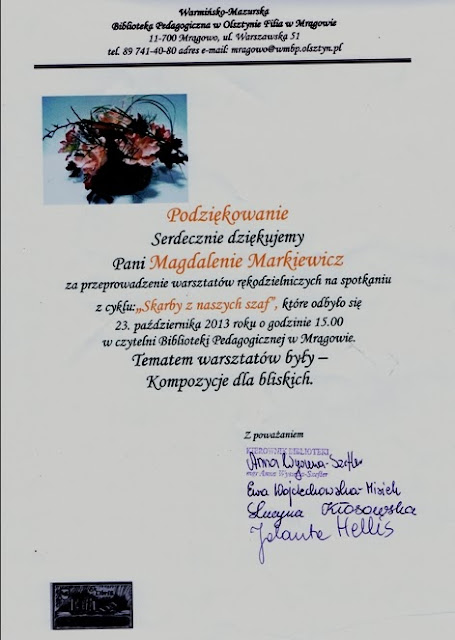 Warmińsko-Mazurska
Biblioteka Pedagogiczna w Olsztynie Filia w Mrągowie
11-700 Mrągowo, ul. Warszawska 51
tel. 89 741-40-80 adres e-mail: mragowo@wmbp.olsztyn.pl
Podziękowanie
Serdecznie dziękujemy
Pani Magdalenie Markiewicz
za przeprowadzenie warsztatów rękodzielniczych na spotkaniu
z cyklu:„Skarby z naszych szaf”, które odbyło się
23. października 2013 roku o godzinie 15.00
w czytelni Biblioteki Pedagogicznej w Mrągowie.
Tematem warsztatów były –
Kompozycje dla bliskich.
Z poważaniem
KIEROWNIK BIBLIOTEKI
Anna
mgr Anna
Ewa Wojciechowska-Misiek
Lucyna Kłosowska
Jolanta Hellis